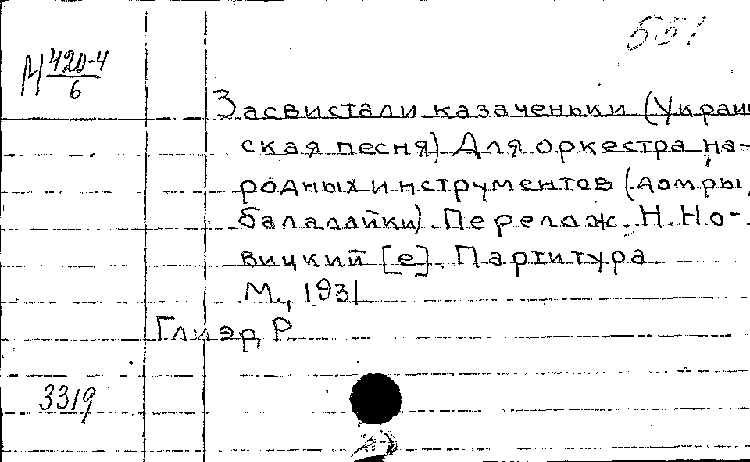 551
М 420-4
6
Засвистали казаченьки (Украин
ская песня) Для оркестра на-
родных инструментов (домры,
балалайки). Перелож. Н. Но-
вицкий [е]. Партитура
М., 1931
Глиэр, Р.
3319